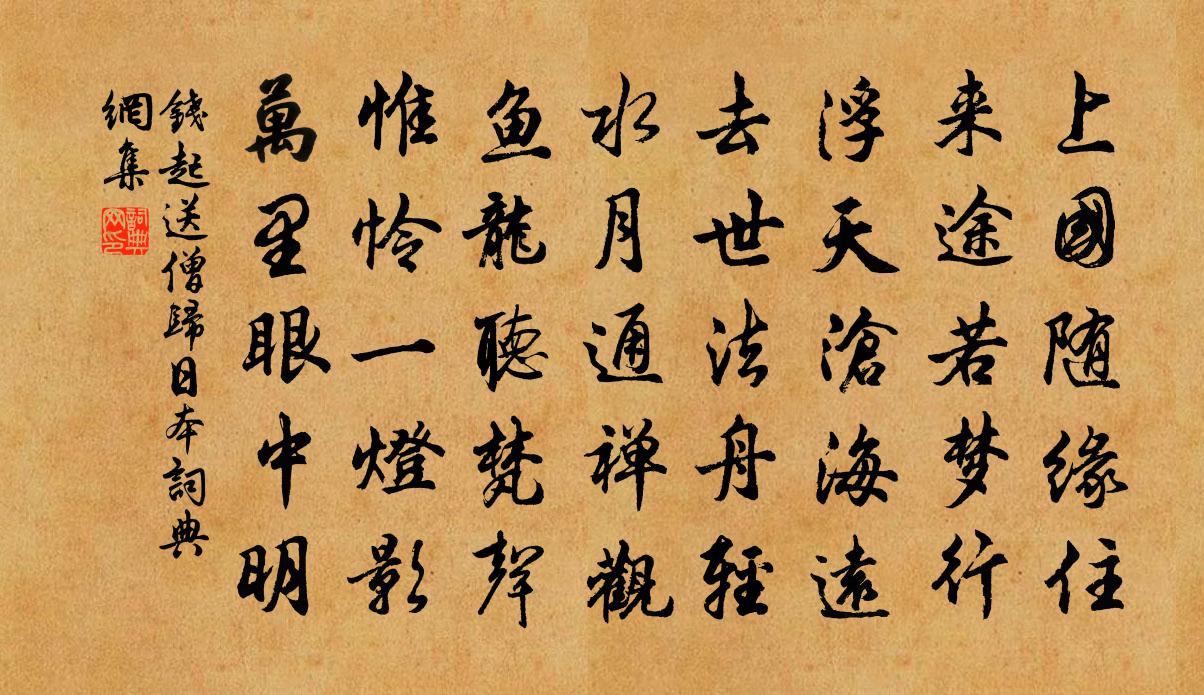 上國随缘住
来途若梦行
浮天滄海遠
去世法舟輕
水月通禅觀
鱼龍聽梵聲
惟怜一燈影
萬里眼中明
錢起送僧歸日本詞典
網集
詞典
网印